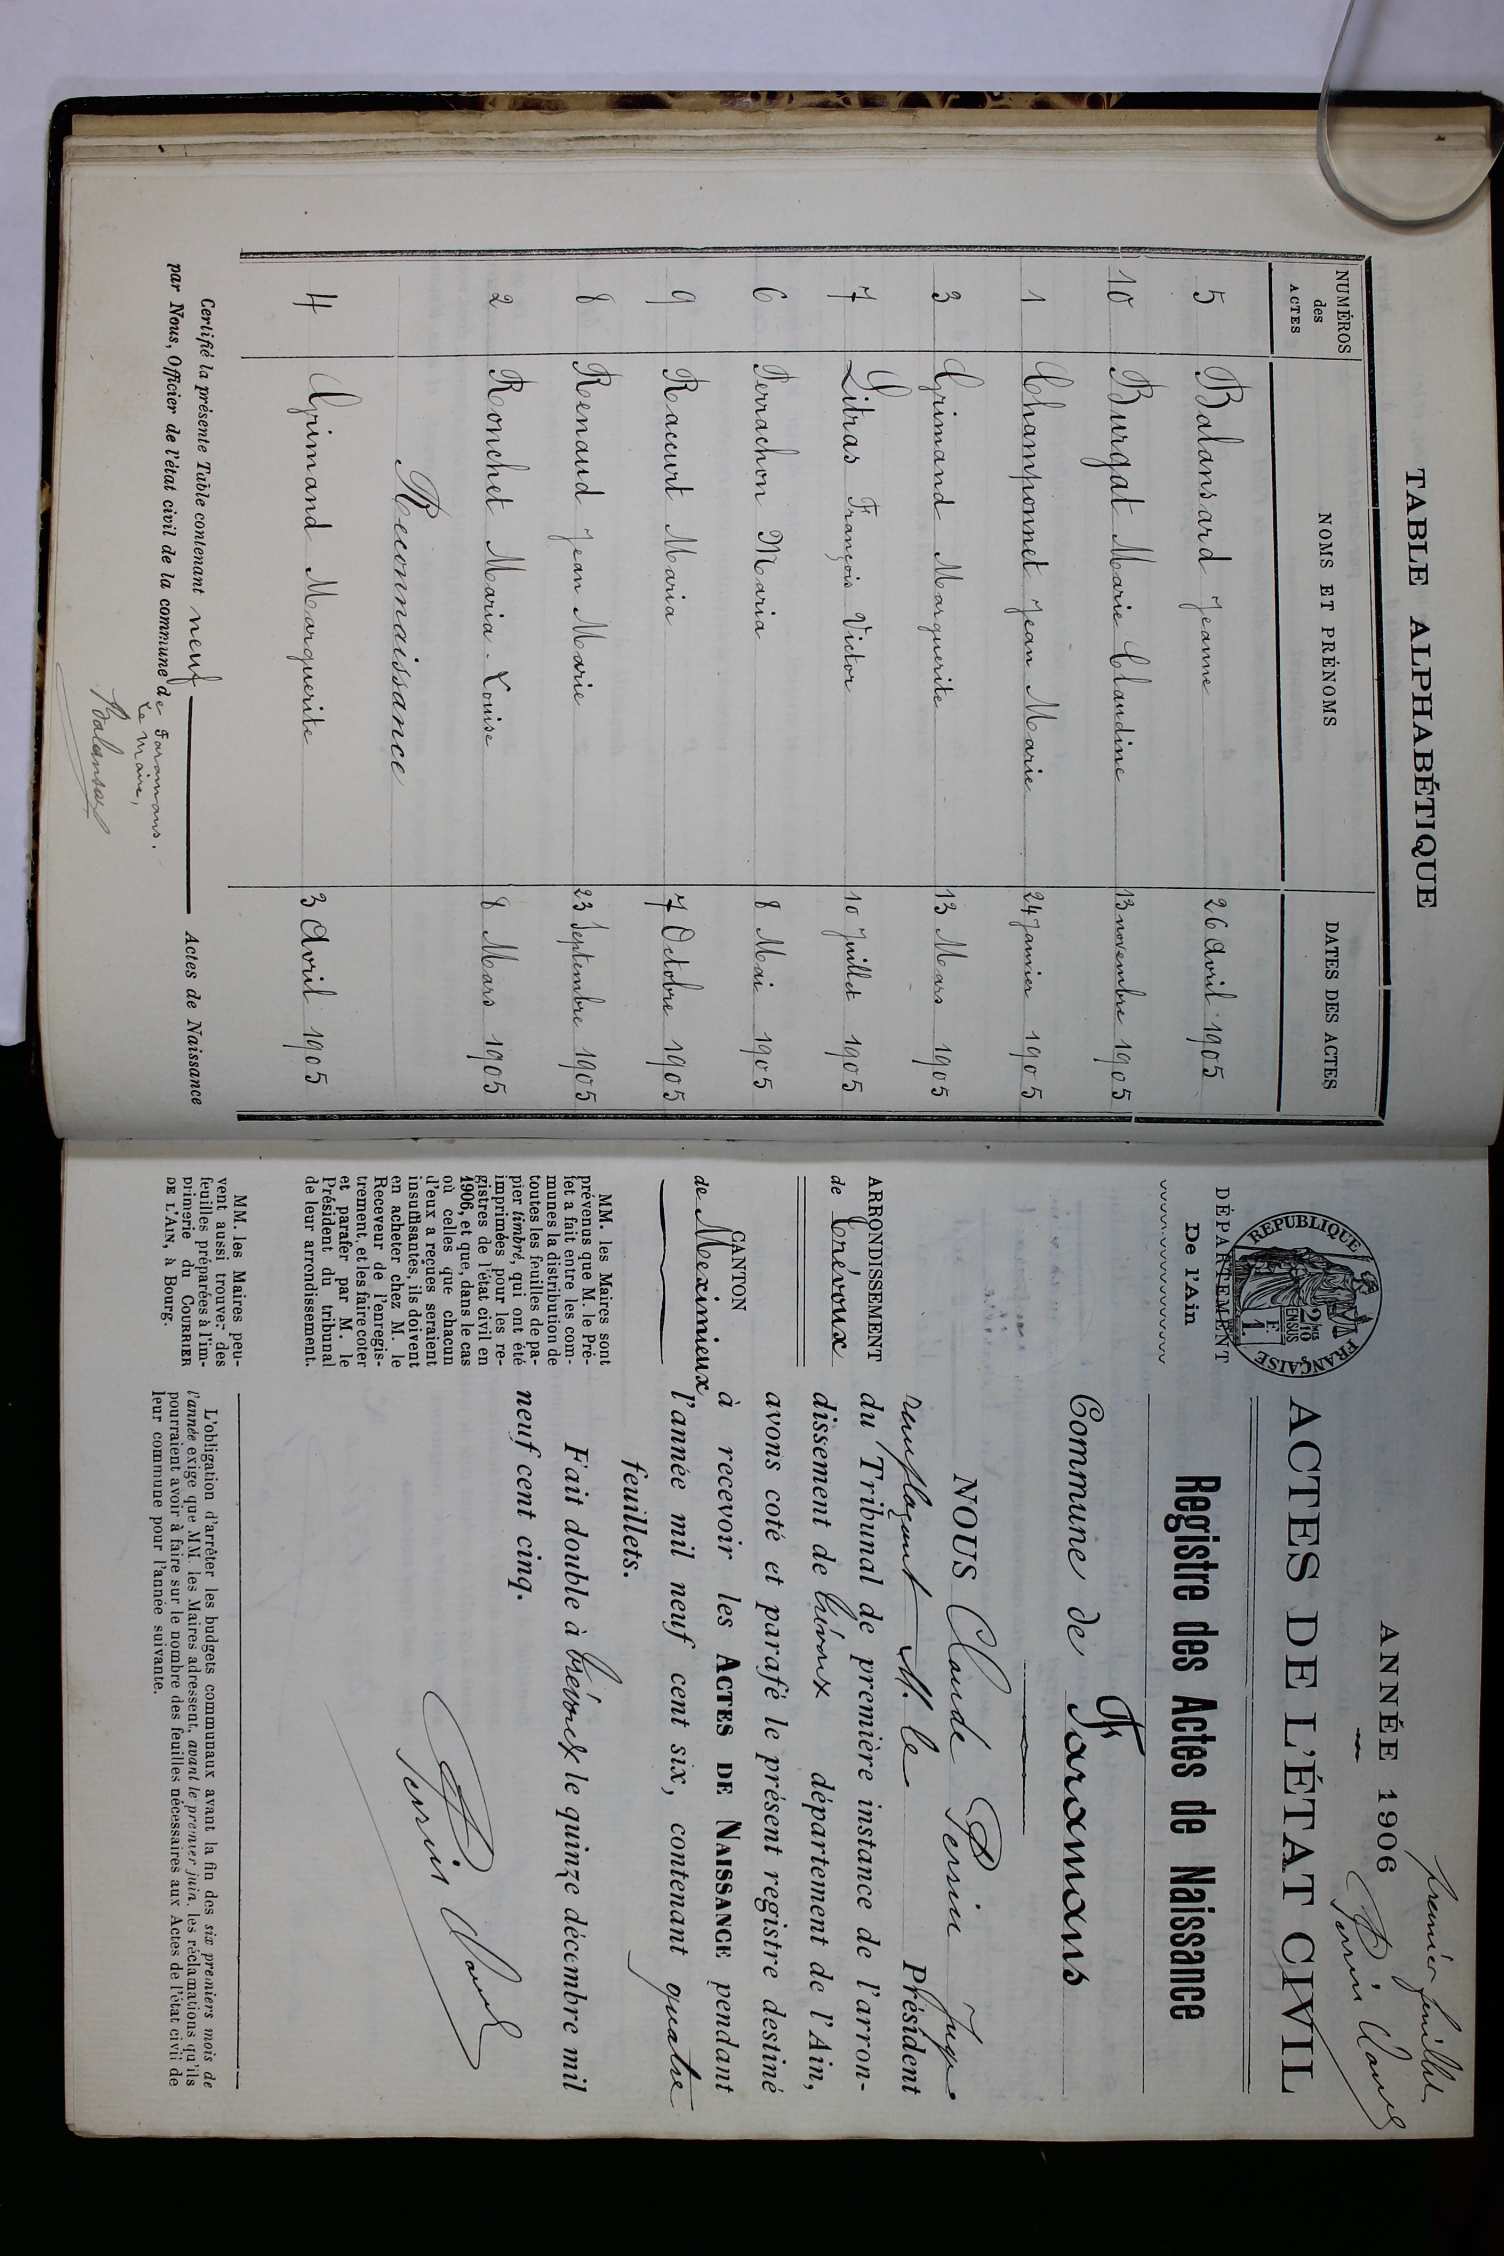 TABLE ALPHABÉTIQUE
NUMÉROS des ACTES NOMS ET PRÉNOMS DATES DES ACTES
5 Balansard Jeanne 26 Avril 1905
10 Burgat Marie Claudine 13 novembre 1905
1 Champonnet Jean Marie 24 janvier 1905
3 Grimand Marguerite 13 Mars 1905
7 Litras François Victor 10 Juillet 1905
6 Perrachon Maria 8 Mai 1905
9 Raccurt Maria 7 Octobre 1905
8 Renaud Jean Marie 23 Septembre 1905
2 Ronchet Maria-Louise 8 Mars 1905
Reconnaissance
4 Grimand Marguerite 3 Avril 1905
Certifié la présente Table contenant neuf Actes de Naissance
par Nous, Officier de l'état civil de la commune de Faramans.
Le Maire,
Balansard
Premier feuillet
Perrin Claude
ANNÉE 1906
RÉPUBLIQUE FRANÇAISE
2 MES 10 EN SUS
1 F.
DÉPARTEMENT
De l'Ain
ACTES DE L'ÉTAT CIVIL
Registre des Actes de Naissance
Commune de Faramans
ARRONDISSEMENT
de Trévoux
CANTON
de Meximieux
MM. les Maires sont
prévenus que M. le Pré-
fet a fait entre les com-
munes la distribution de
toutes les feuilles de pa-
pier timbré, qui ont été
imprimées pour les re-
gistres de l'état civil en
1906, et que, dans le cas
où celles que chacun
d'eux a reçues seraient
insuffisantes, ils doivent
en acheter chez M. le
Receveur de l'enregis-
trement, et les faire coter
et parafer par M. le
Président du tribunal
de leur arrondissement.
MM. les Maires peu-
vent aussi trouver des
feuilles préparées à l'im-
primerie du COURRIER
DE L'AIN, à Bourg.
NOUS Claude Perrin Juge
remplaçant M. le Président
du Tribunal de première instance de l'arron-
dissement de Trévoux département de l'Ain,
avons coté et parafé le présent registre destiné
à recevoir les ACTES DE NAISSANCE pendant
l'année mil neuf cent six, contenant quatre
feuillets.
Fait double à Trévoux le quinze décembre mil
neuf cent cinq.
Perrin Claude
L'obligation d'arrêter les budgets communaux avant la fin des six premiers mois de
l'année exige que MM. les Maires adressent, avant le premier juin, les réclamations qu'ils
pourraient avoir à faire sur le nombre des feuilles nécessaires aux Actes de l'état civil de
leur commune pour l'année suivante.